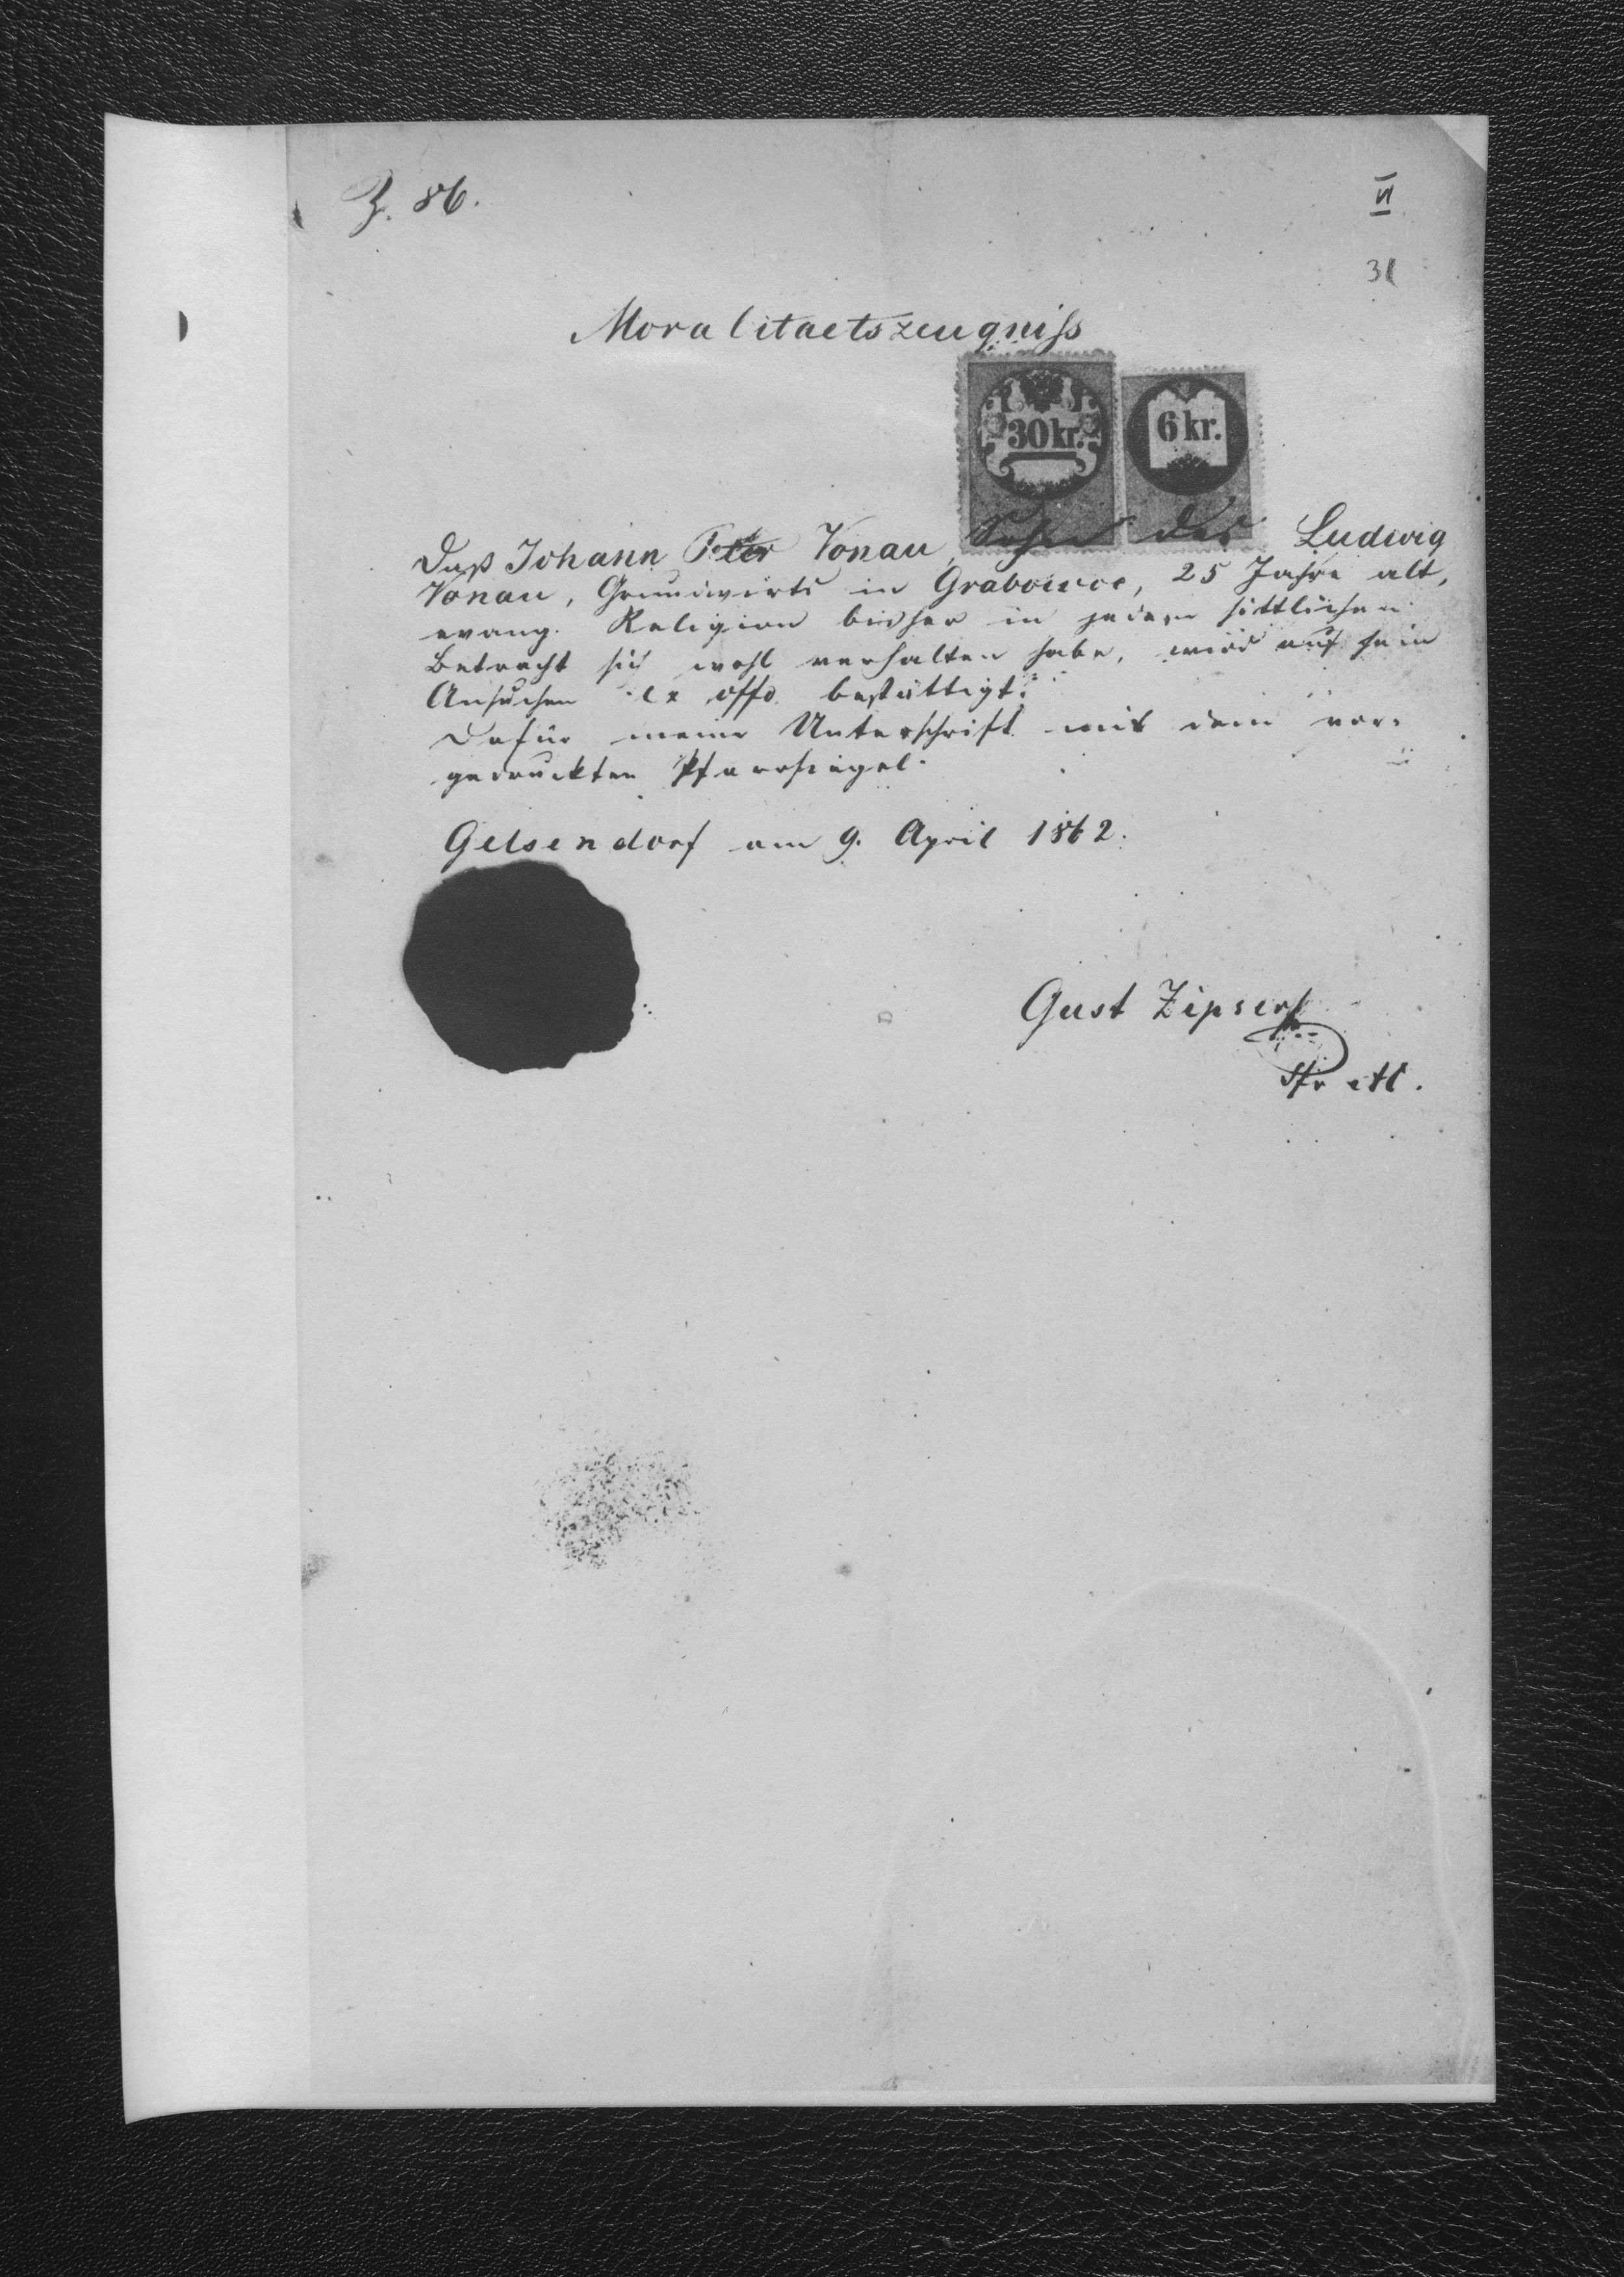 Z. 86.
VI
31
Moralitaetszeugniß
30 kr.
6 kr.
Daß Johann Peter Vonau, Sohn des Ludwig
Vonau, Grundwirts in Grabowce, 25 Jahre alt,
evang. Religion bisher in jedem sittlichen
Betracht sich wohl verhalten habe, wird auf sein
Ansuchen ex offo bestättigt.
Dafür meine Unterschrift mit dem vor-
gedruckten Pfarrsiegel.
Gelsendorf am 9. April 1862.
Gust Zipser